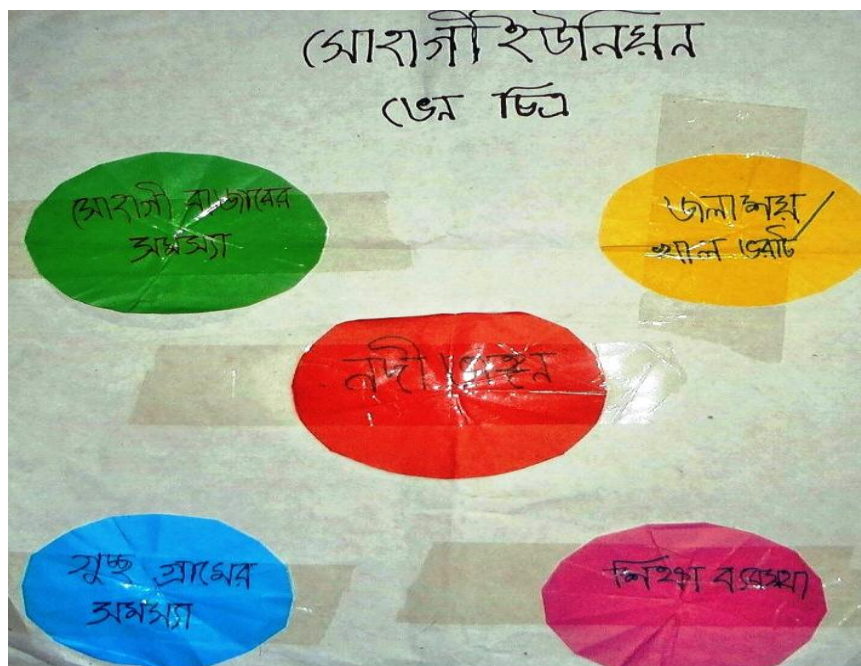 সোহাগী ইউনিয়ন
ভেন চিত্র
সোহাগী বাজারের
সমস্যা
জলাশয়/
খাল ভরাট
নদী ভাঙ্গন
গুচ্ছ গ্রামের
সমস্যা
শিক্ষা ব্যবস্থা